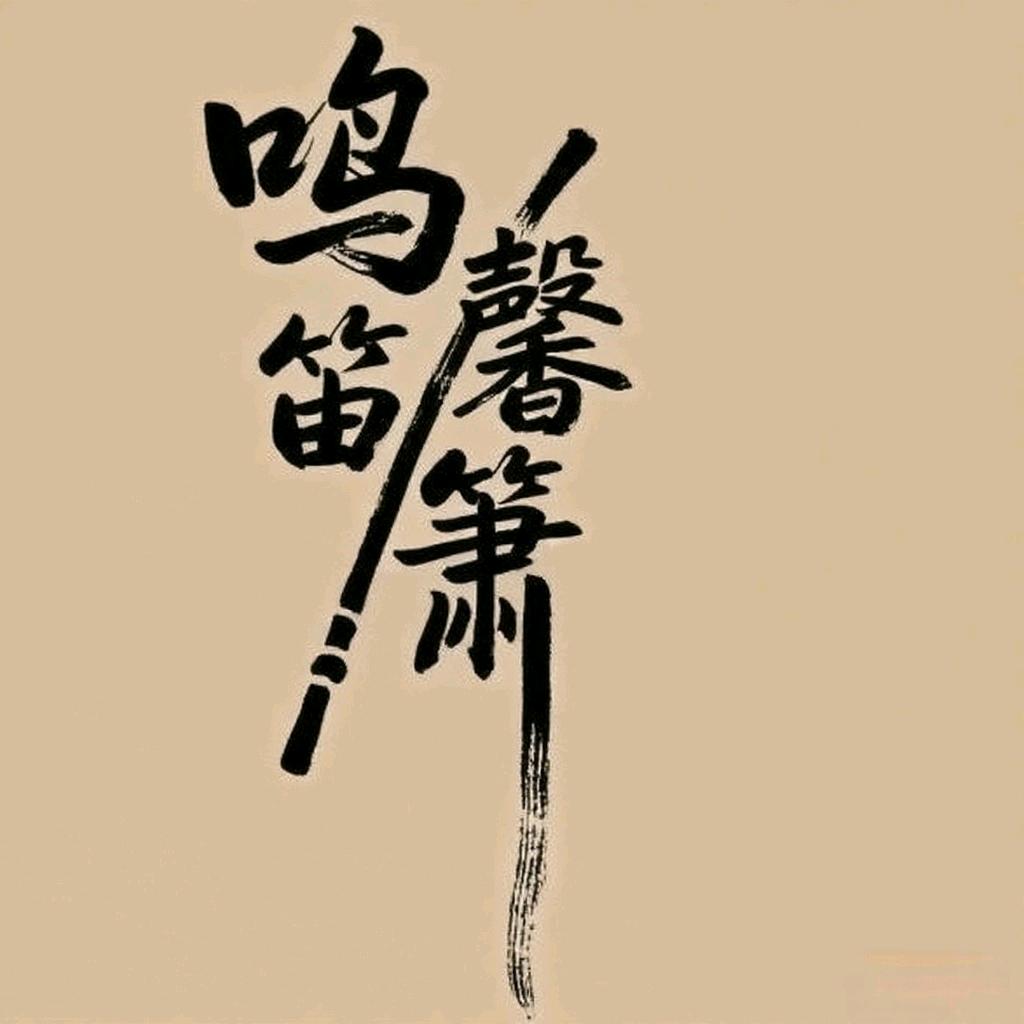 鸣笛
馨箫